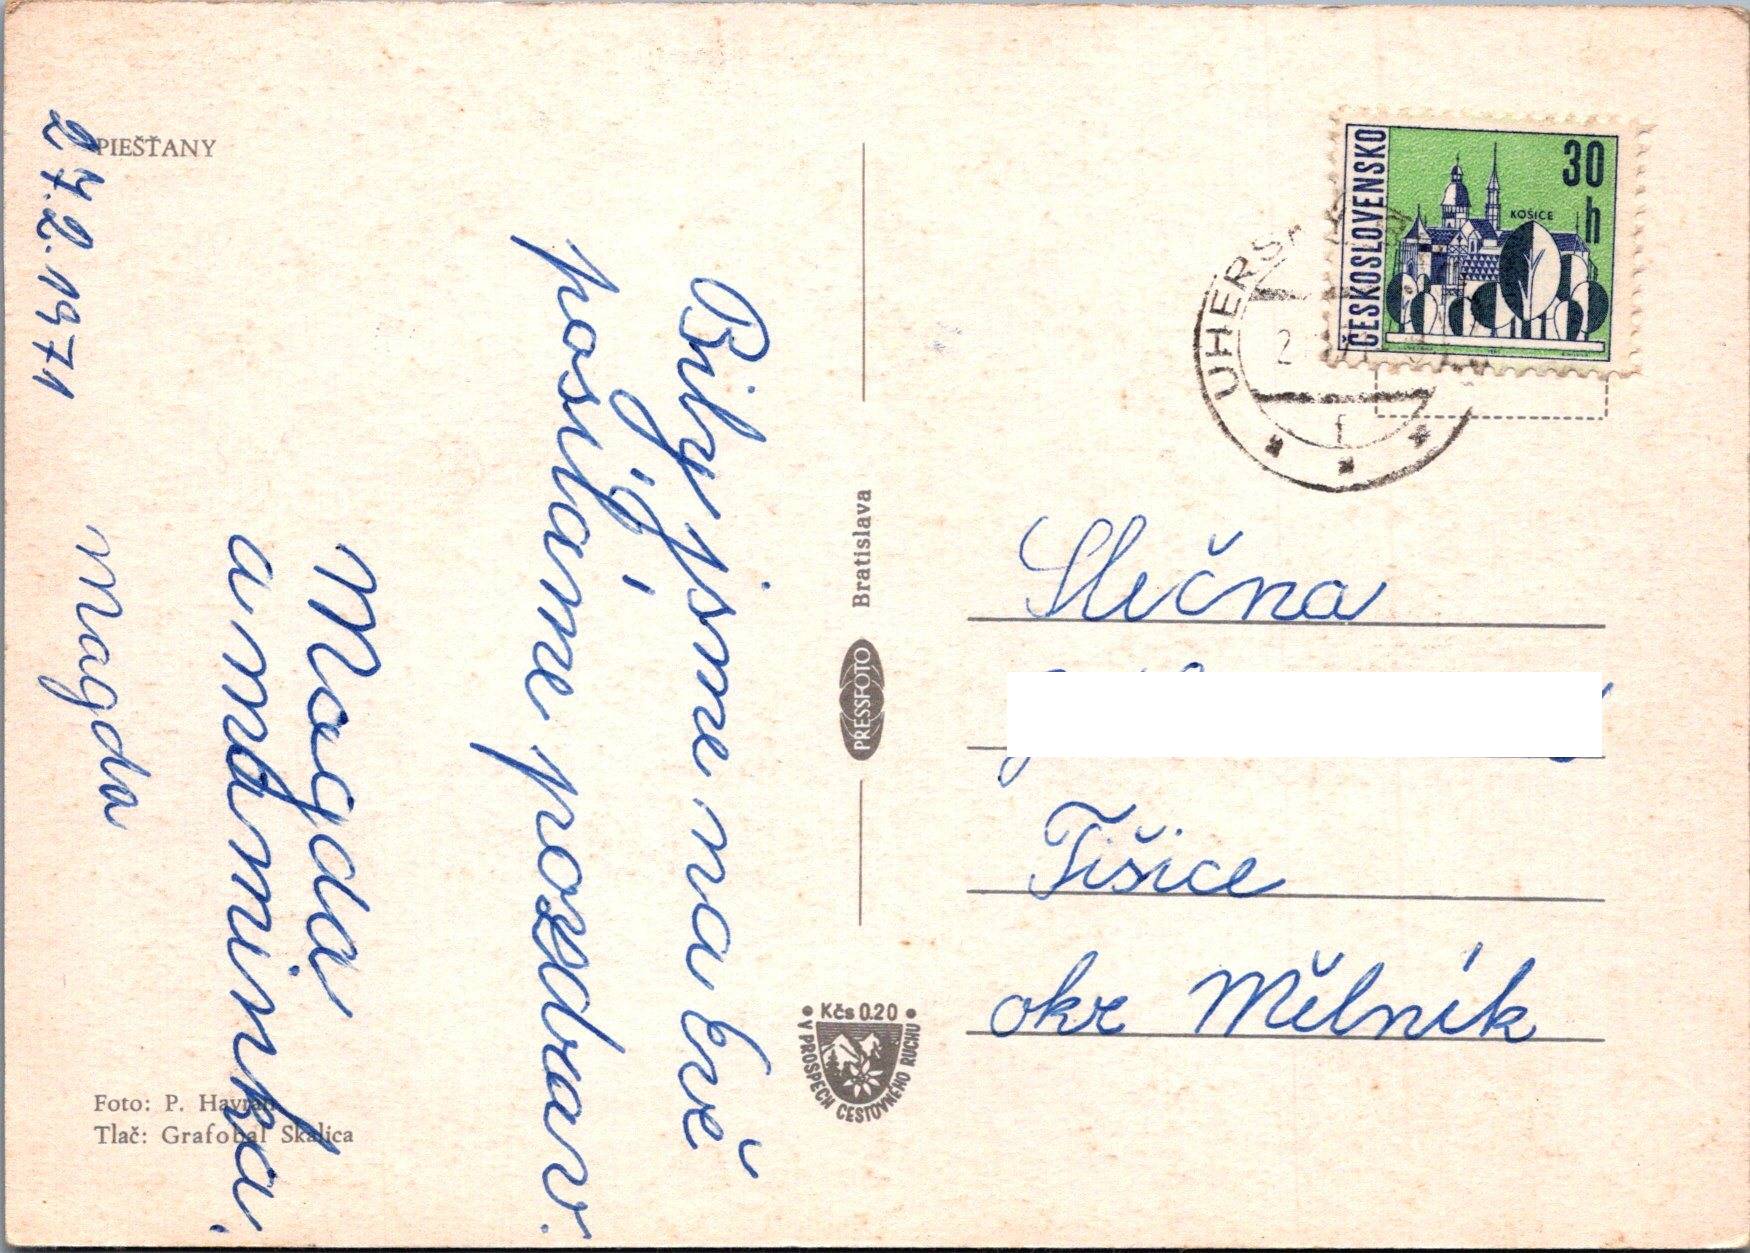 PIEŠŤANY
27.2.1971
Byly jsme na Evě
a jíž
posíláme pozdrav.
Magda
a maminka.
Magda
Foto: P. Havran
Tlač: Grafobal Skalica
Bratislava
PRESSFOTO
Kčs 0.20
V PROSPECH CESTOVNÉHO RUCHU
ČESKOSLOVENSKO
30
h
KOŠICE
UHERSK
Slečna
Tišice
okr Mělník